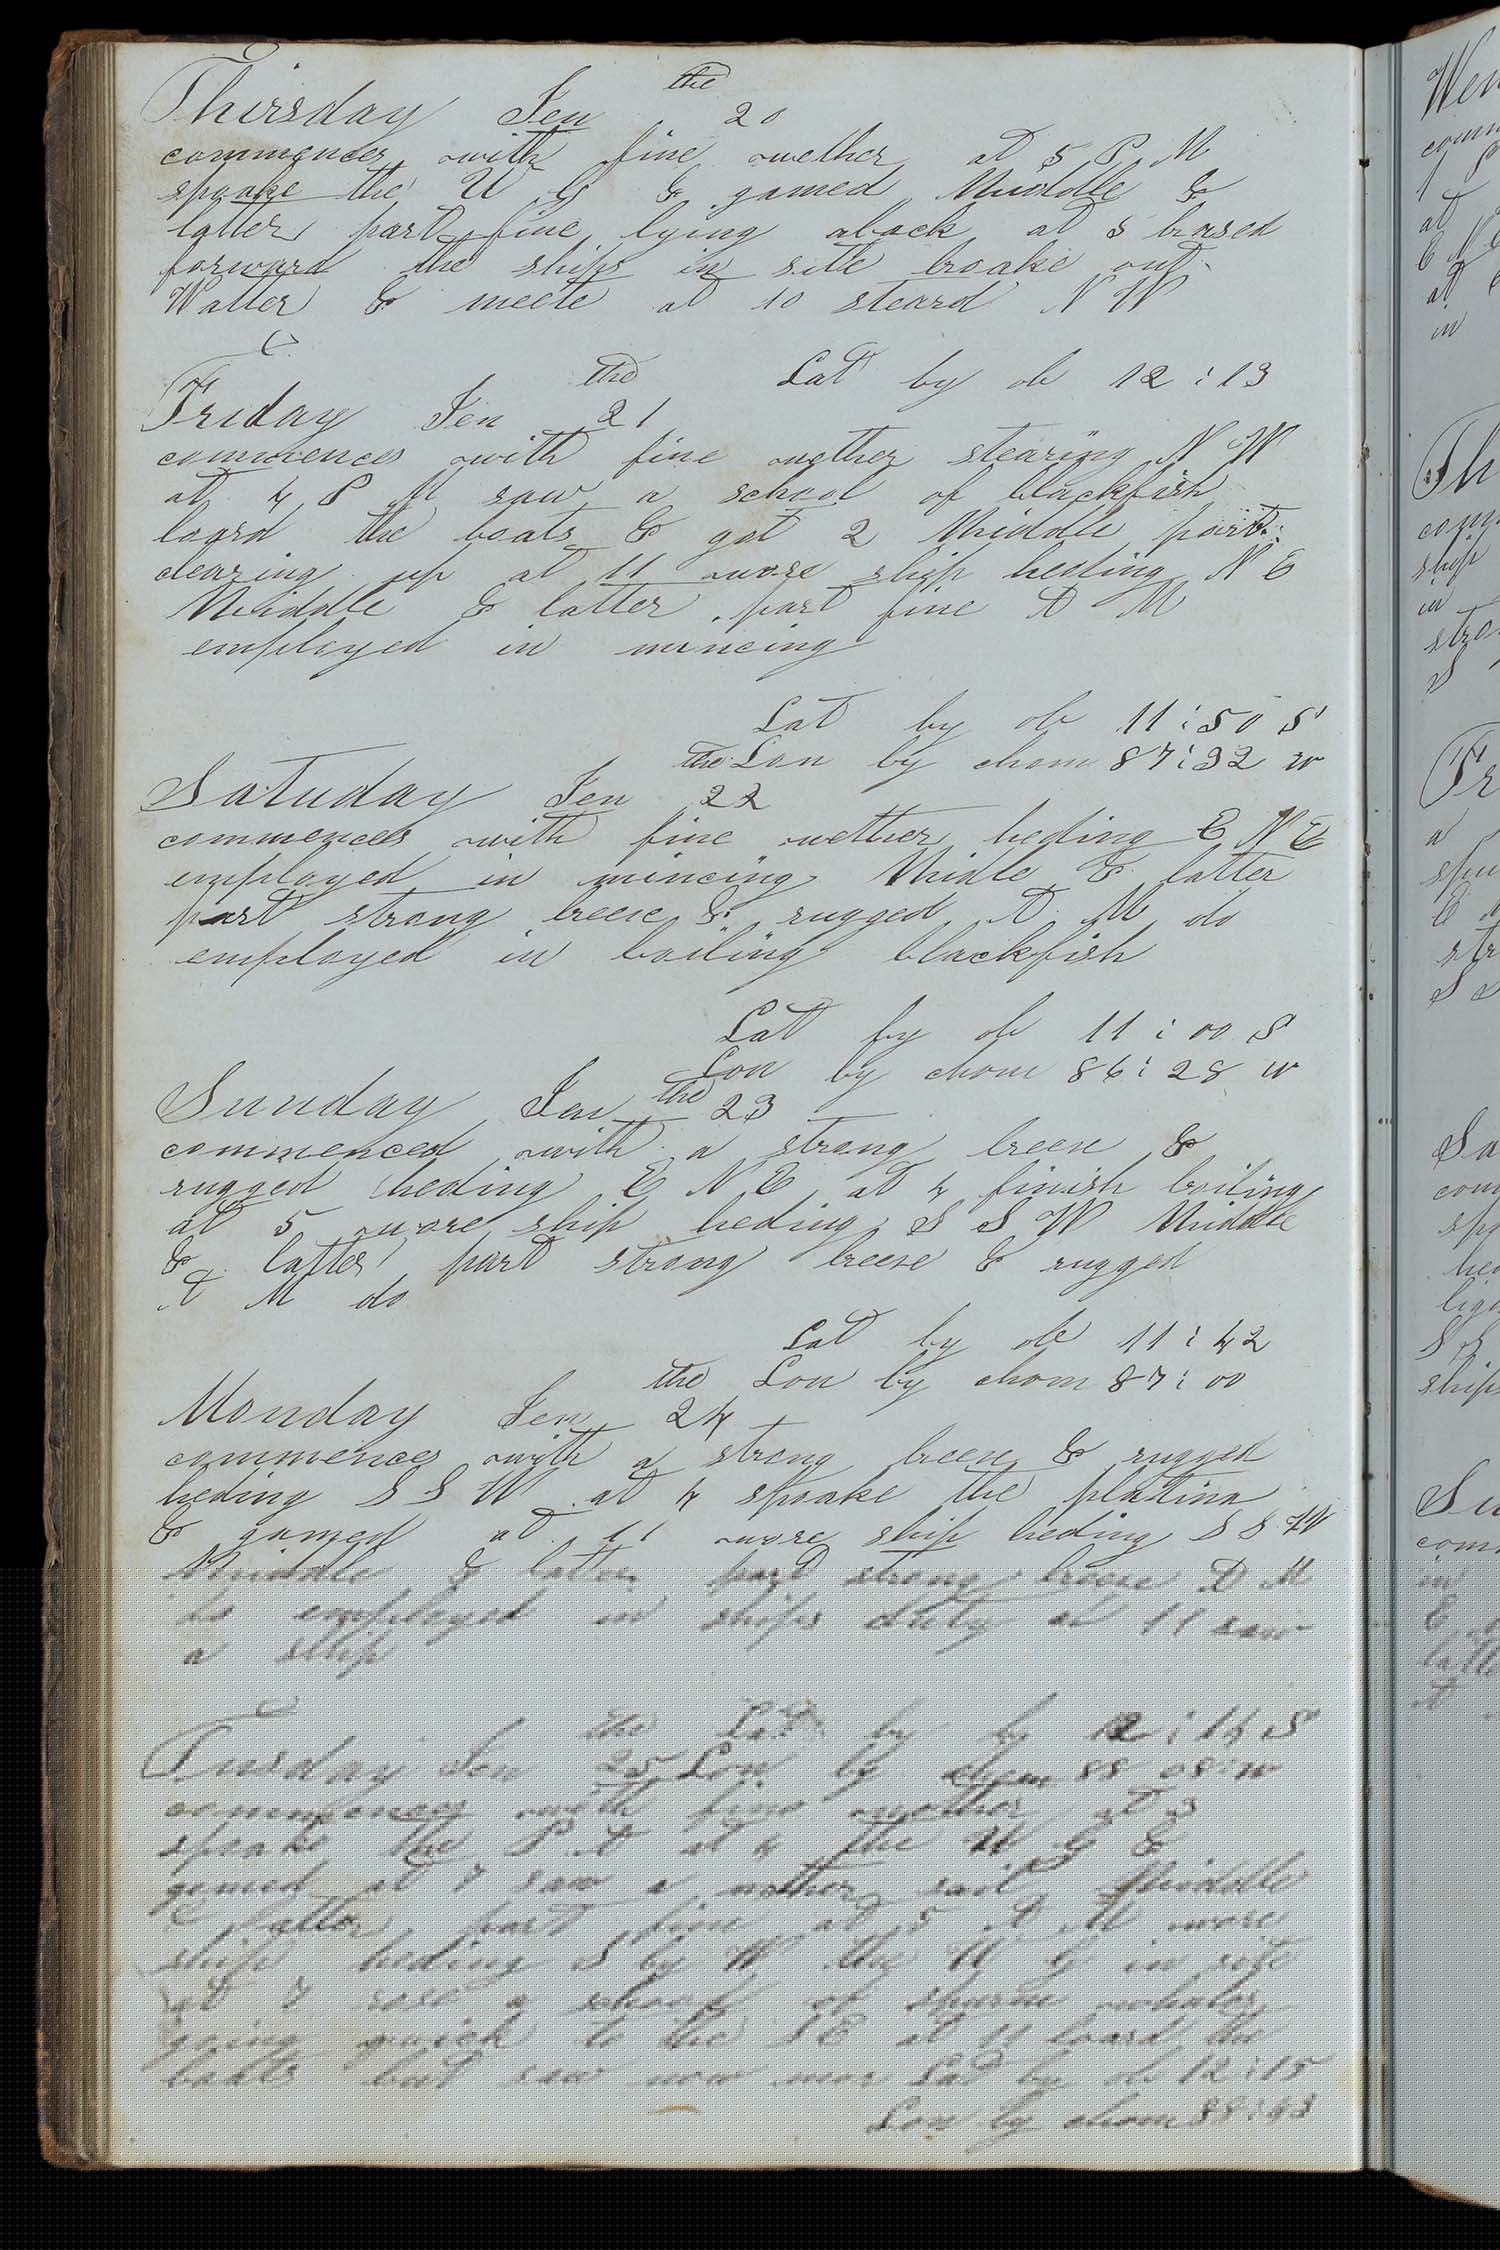 Thirsday Jen the 20
commences with fine wether at 5 P M
spoake the W G & gamed Middle &
latter part fine lying aback at 5 brased
forward the ships in site broake out
Watter & meete at 10 steard N W
Lat by ob 12:13
Friday Jen the 21
commences with fine wether stearing N W
at 4 P M saw a school of blackfish
loard the boats & got 2 Middle part
clearing up at 11 wore ship heding N E
Middle & latter part fine A M
employed in mincing
Lat by ob 11:50 S
Lon by chom 87:32 w
Satuday Jen the 22
commences with fine wether heding E N E
employed in mincing Midle & latter
part strong breese & rugged A M do
employed in boiling blackfish
Lat by ob 11:00 S
Lon by chom 86:28 w
Sunday Jen the 23
commenced with a strong breese &
rugged heding E N E at 4 finish boiling
at 5 wore ship heding S S W Middle
& latter part strong breese & rugged
A M do
Lat by ob 11:42
Lon by chom 87:00
Monday Jen the 24
commences with a strong breese & rugged
heding S S W at 4 spoake the platina
& gamed at 11 wore ship heding S S W
Middle & latter part strong breese A M
do employed in ships duty at 11 saw
a ship
the Lat by by 12:14 S
Tusday Jen 25 Lon by chom 88 08 w
commences with fine wether at 3
spoake the P A at 4 the W G &
gamed at 7 saw a nother sail Middle
& latter part fine at 5 A M wore
ship heding S by W the W G in site
at 7 rase a school of spurm whales
going quick to the S E at 11 loard the
boats but saw now mor Lat by ob 12:15
Lon by chom 88:43